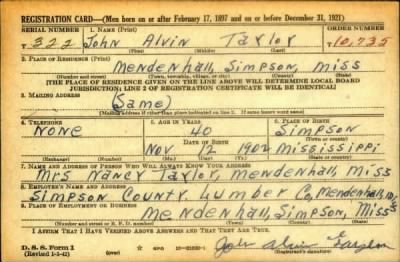 REGISTRATION CARD—(Men born on or after February 17, 1897 and on or before December 31, 1921)
SERIAL NUMBER 1. NAME (Print) ORDER NUMBER
T 322 John Alvin Taylor T10,735
(First) (Middle) (Last)
2. PLACE OF RESIDENCE (Print)
Mendenhall, Simpson, Miss
(Number and street) (Town, township, village, or city) (County) (State)
[THE PLACE OF RESIDENCE GIVEN ON THE LINE ABOVE WILL DETERMINE LOCAL BOARD
JURISDICTION; LINE 2 OF REGISTRATION CERTIFICATE WILL BE IDENTICAL]
3. MAILING ADDRESS
(Same)
[Mailing address if other than place indicated on line 2. If same insert word same]
4. TELEPHONE 5. AGE IN YEARS 6. PLACE OF BIRTH
None 40 Simpson
DATE OF BIRTH (Town or county)
Nov 12 1902 Mississippi
(Exchange) (Number) (Mo.) (Day) (Yr.) (State or country)
7. NAME AND ADDRESS OF PERSON WHO WILL ALWAYS KNOW YOUR ADDRESS
Mrs Nancy Taylor, Mendenhall, Miss
8. EMPLOYER'S NAME AND ADDRESS
Simpson County Lumber Co, Mendenhall, Miss
9. PLACE OF EMPLOYMENT OR BUSINESS
Mendenhall, Simpson, Miss
(Number and street or R. F. D. number) (Town) (County) (State)
I AFFIRM THAT I HAVE VERIFIED ABOVE ANSWERS AND THAT THEY ARE TRUE.
D. S. S. Form 1
(Revised 1-1-42)
John Alvin Taylor